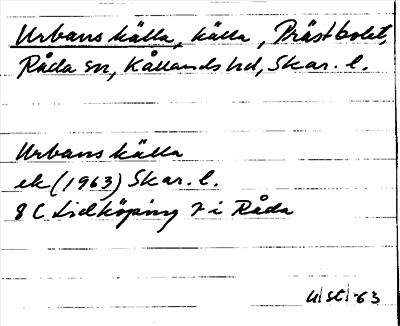 Urbans källa, källa, Prästbolet,
Råda sn, Kållands hd, Skar. l.
Urbans källa
ek (1963) Skar. l.
8 C Lidköping 7 i Råda
63